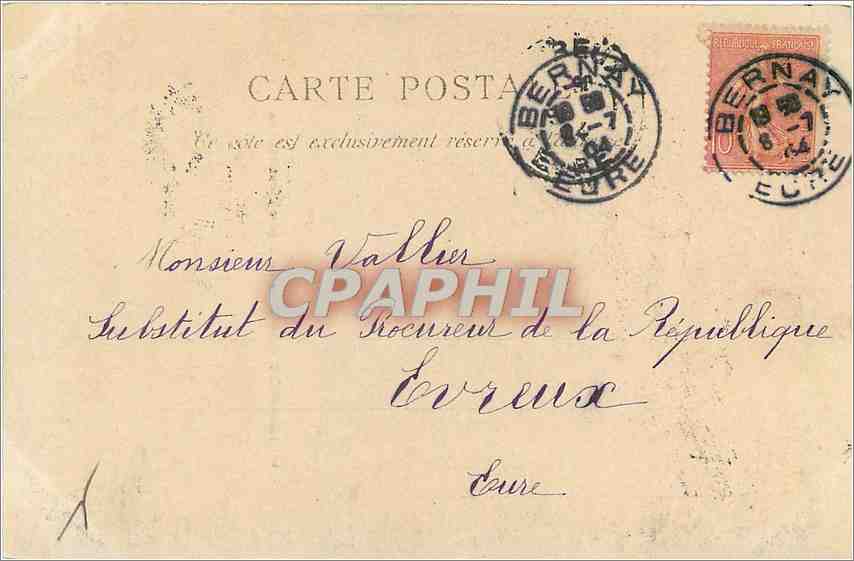 CARTE POSTA
Ce côté est exclusivement réservé à
RÉPUBLIQUE FRANÇAISE
10
BERNAY
EURE
8 -7
04
BERNAY
EURE
8 -7
04
Monsieur Vallier
CPAPHIL
Substitut du Procureur de la République
Evreux
Eure